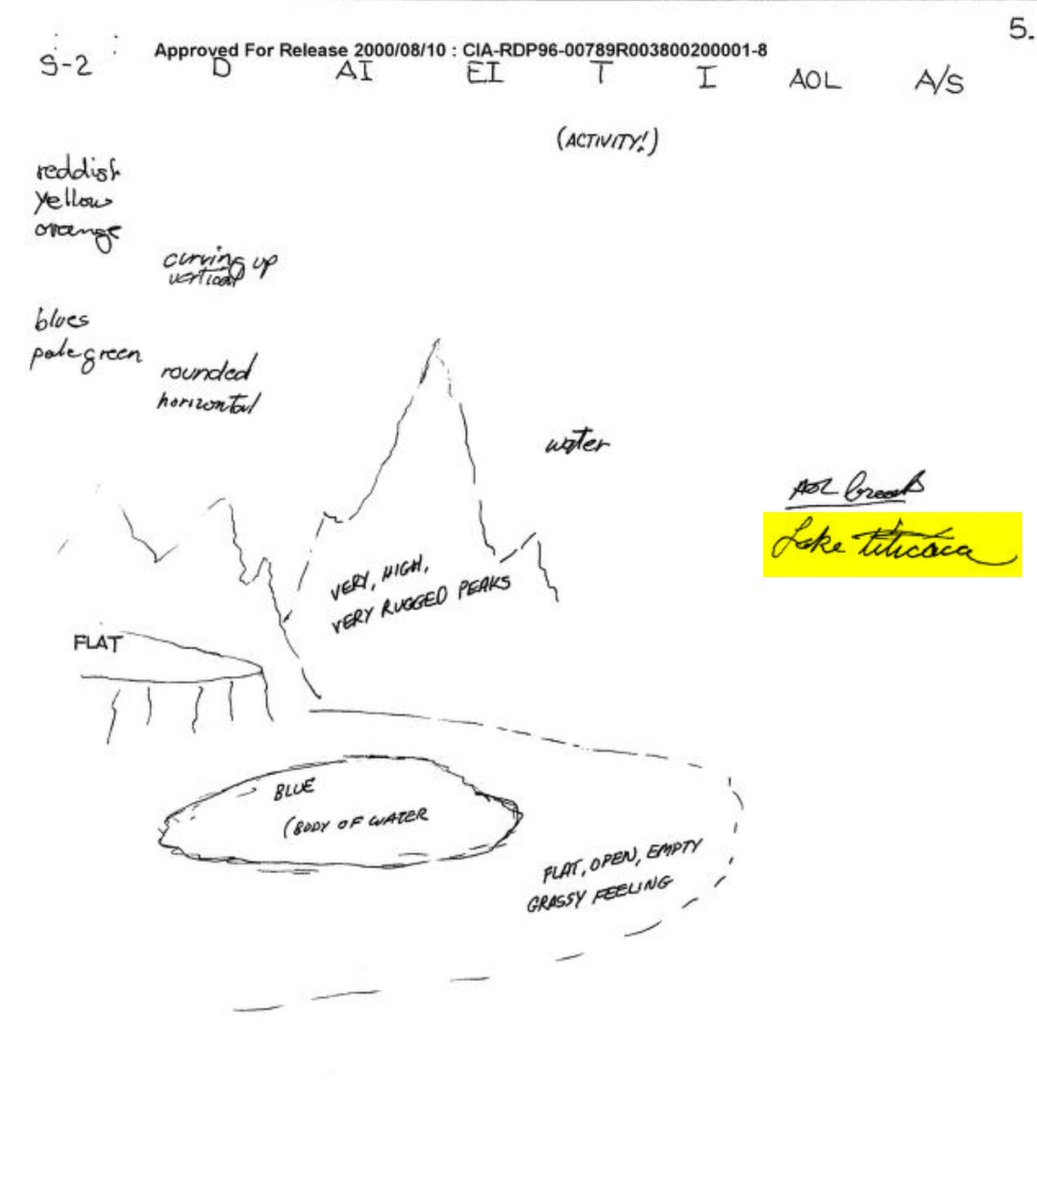 5.
Approved For Release 2000/08/10 : CIA-RDP96-00789R003800200001-8
S-2 D AI EI T I AOL A/S
(ACTIVITY!)
reddish
yellow
orange
curving up
vertical
blues
pale green
rounded
horizontal
water
AOL break
Lake Titicaca
VERY, HIGH,
VERY RUGGED PEAKS
FLAT
BLUE
(BODY OF WATER
FLAT, OPEN, EMPTY
GRASSY FEELING